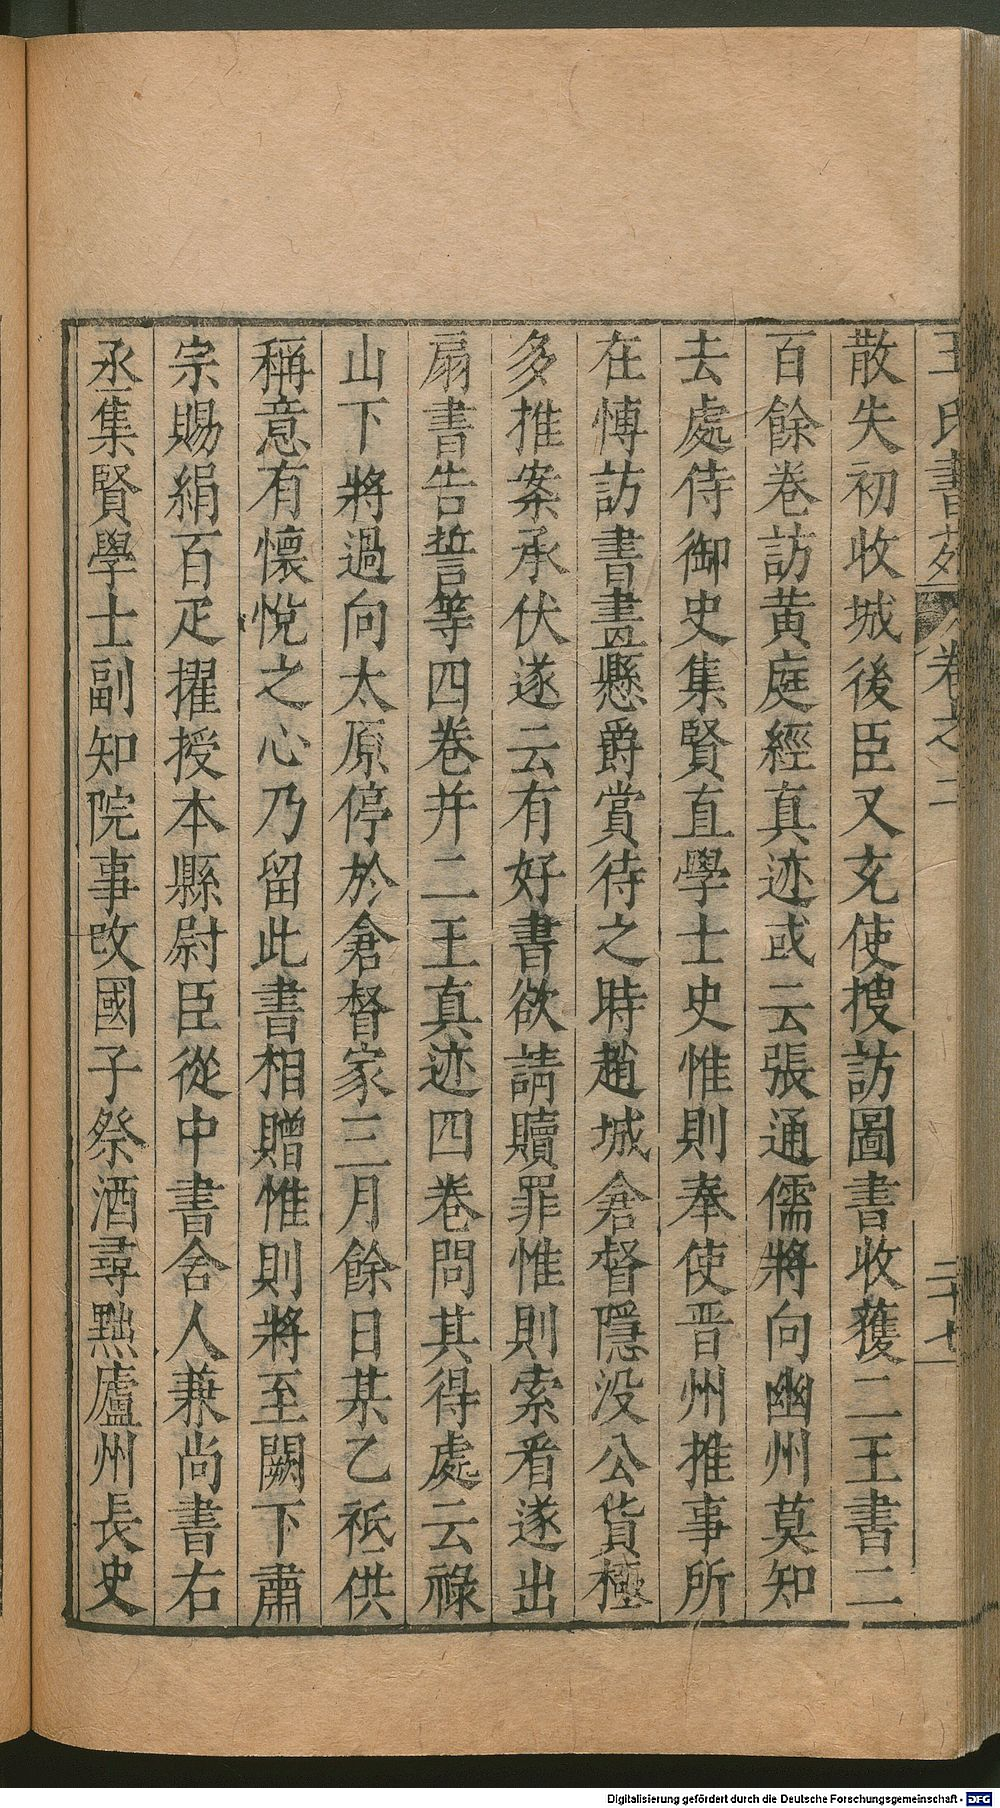 王氏書苑 卷之二 二十七
散失初收城後臣又充使搜訪圖書收獲二王書二
百餘卷訪黃庭經真迹或云張通儒將向幽州莫知
去處侍御史集賢直學士史惟則奉使晋州推事所
在愽訪書畫懸爵賞待之時趙城倉督隱没公貨極
多推案承伏遂云有好書欲請贖罪惟則索看遂出
扇書告誓等四巻并二王真迹四巻問其得處云祿
山下將過向太原停於倉督家三月餘日某乙祗供
稱意有懷悅之心乃留此書相贈惟則將至闕下肅
宗賜絹百疋擢授本縣尉臣從中書舍人兼尚書右
丞集賢學士副知院事改國子祭酒尋黜廬州長史
Digitalisierung gefördert durch die Deutsche Forschungsgemeinschaft - DFG